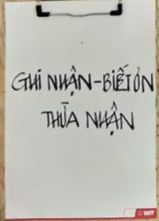 GHI NHẬN-BIẾT ƠN
THỪA NHẬN